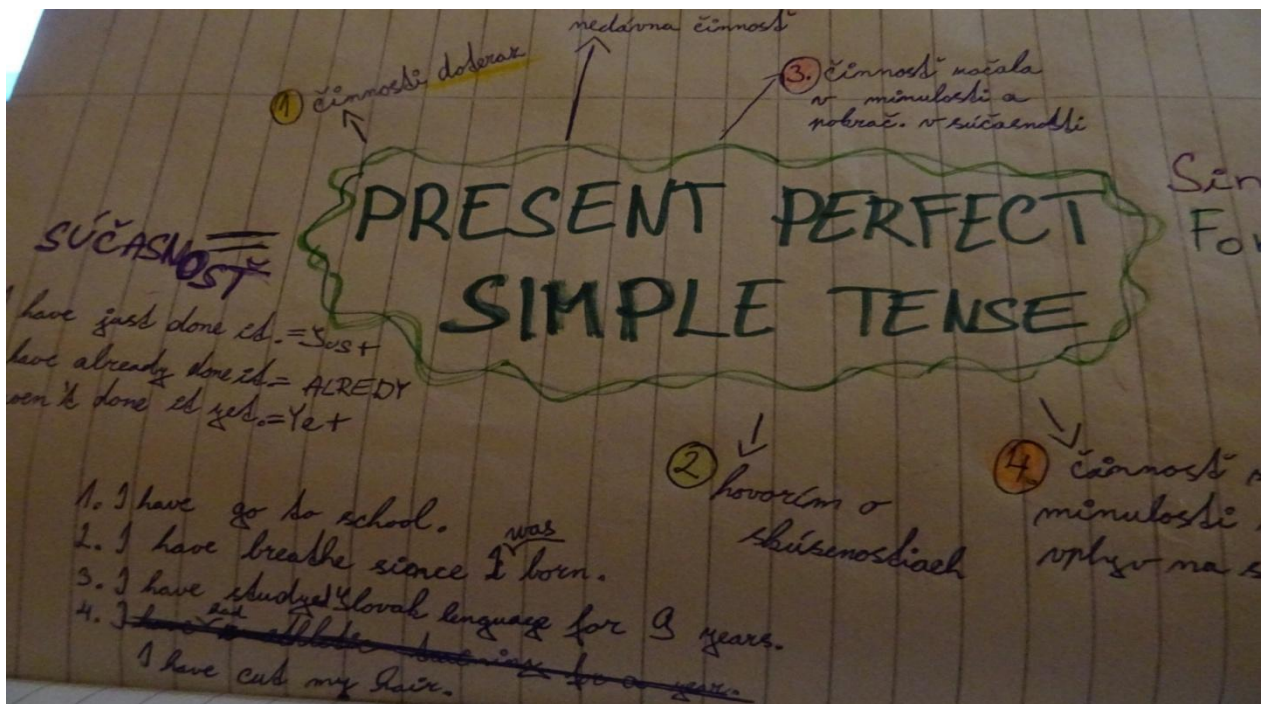 nedávna činnosť
1 činnosti doteraz
3. činnosť začala
v minulosti a
pokrač. v súčasnosti
PRESENT PERFECT
SIMPLE TENSE
Sim
For
SÚČASNOSŤ
I have just done it. = Just
have already done it = ALREDY
ven't done it yet. = Yet
2 hovorím o
skúsenostiach
4. činnosť
minulosti
vplyv na s
1. I have go to school.
2. I have breathe sionce I was born.
3. I have studyed Slovak lenguage for 9 years.
4. I
I have cut my hair.